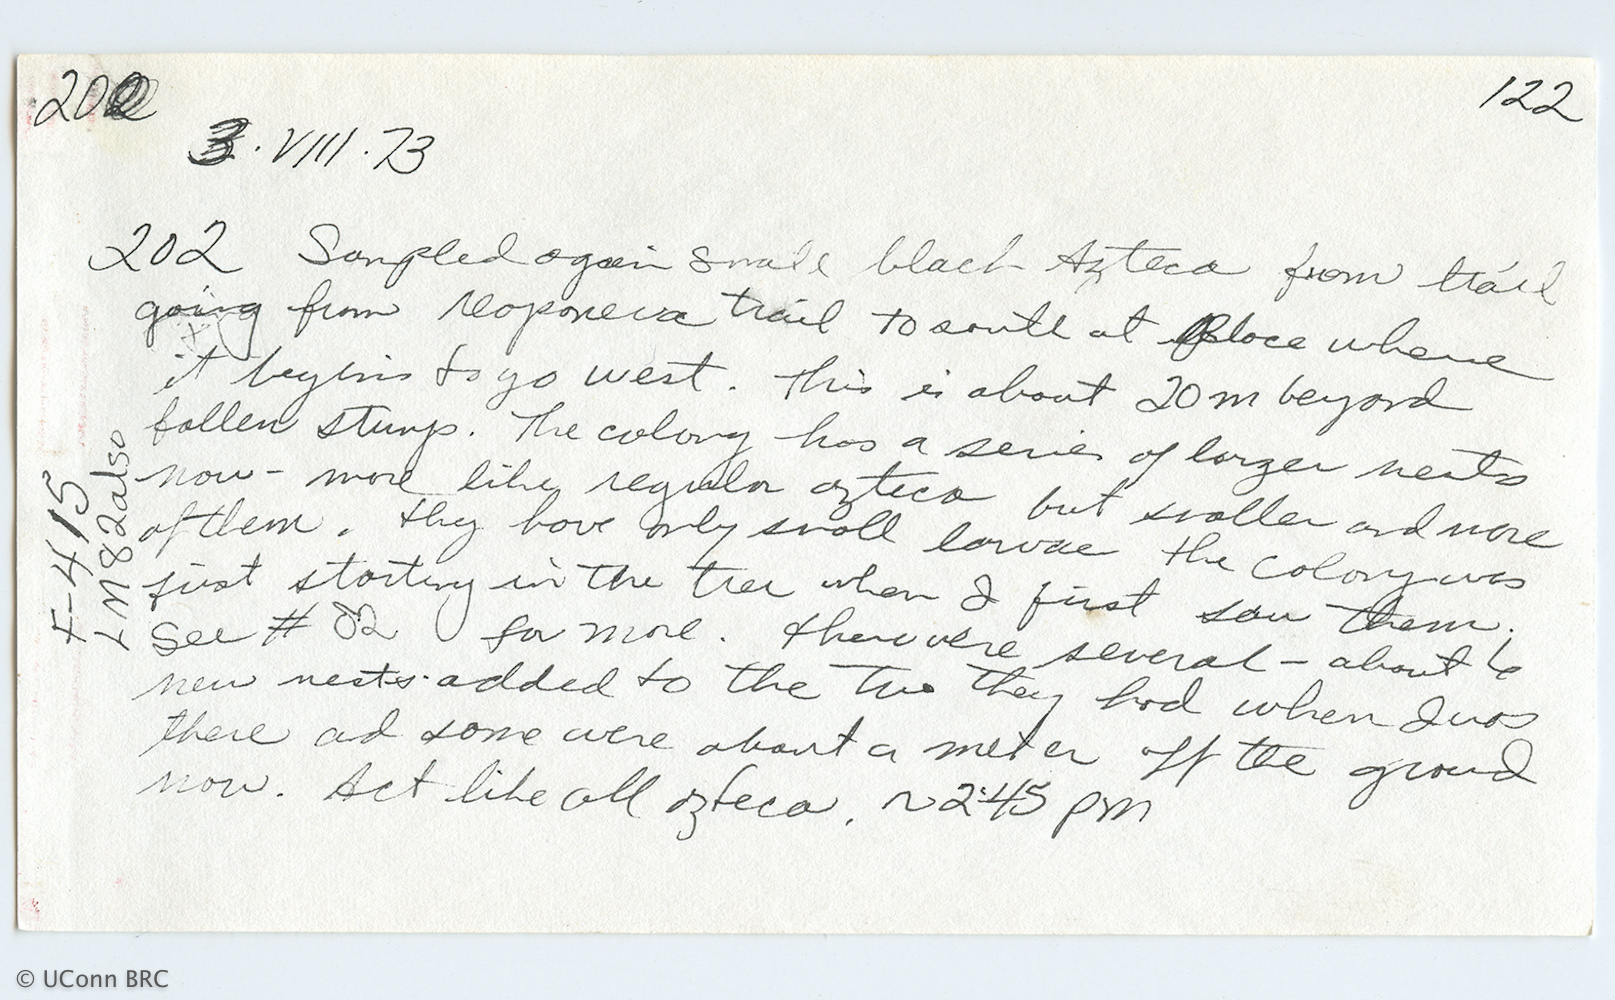 202
122
3.VIII.73
202 Sampled again small black Azteca from trail
going from trail to south at place where
it begins to go west. This is about 20m beyond
fallen stump. The colony has a series of larger nests
now - more like regular azteca but smaller and more
of them. They have only small larvae The colony was
just starting in the tree when I first saw them.
See # 82 for more. There were several - about 6
new nests added to the two they had when I was
there ad some were about a meter off the ground
now. Act like all azteca. ~2:45 pm
F-415
LM 82 also
© UConn BRC